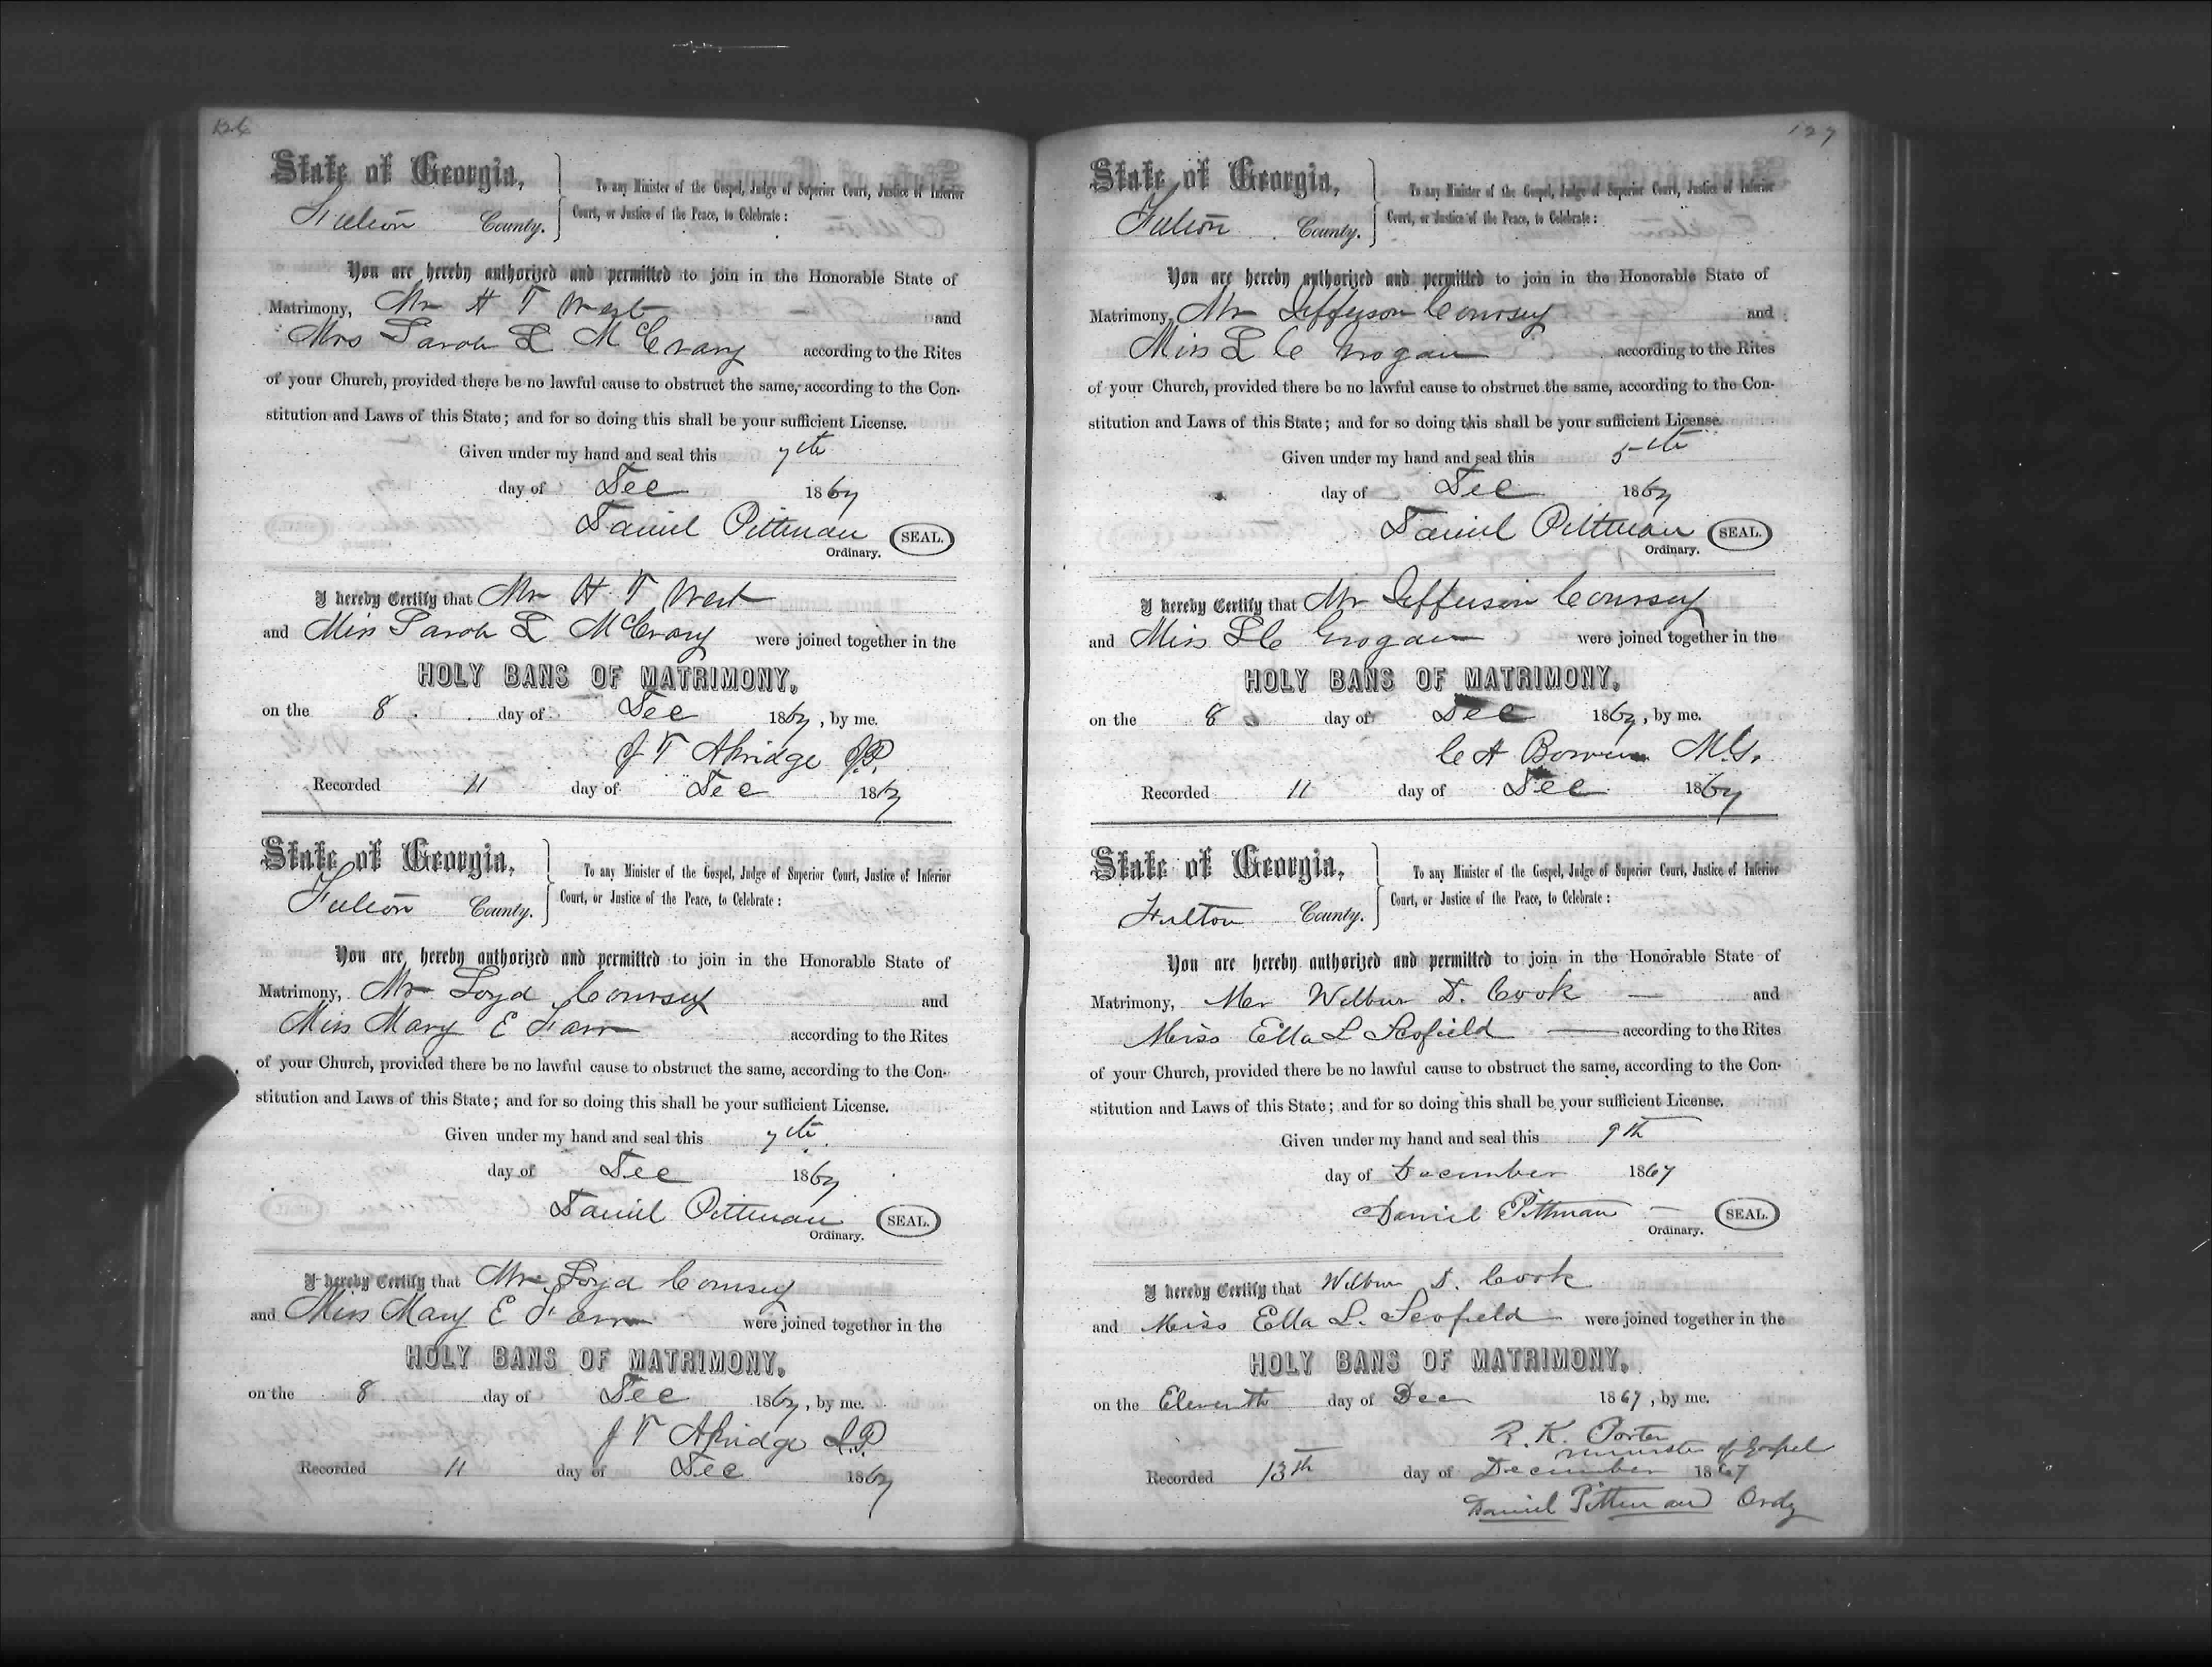 126
State of Georgia,
To any Minister of the Gospel, Judge of Superior Court, Justice of Inferior
Fulton County.
Court, or Justice of the Peace, to Celebrate:
You are hereby authorized and permitted to join in the Honorable State of
Matrimony, Mr H T West and
Mrs Sarah L McCrary according to the Rites
of your Church, provided there be no lawful cause to obstruct the same, according to the Con-
stitution and Laws of this State; and for so doing this shall be your sufficient License.
Given under my hand and seal this 7th
day of Dec 1867
Daniel Pittman SEAL.
Ordinary.
I hereby Certify that Mr H T West
and Miss Sarah L McCrary were joined together in the
HOLY BANS OF MATRIMONY,
on the 8 day of Dec 1867, by me.
J T Akridge J.P.
Recorded 11 day of Dec 1867
State of Georgia,
To any Minister of the Gospel, Judge of Superior Court, Justice of Inferior
Fulton County.
Court, or Justice of the Peace, to Celebrate:
You are hereby authorized and permitted to join in the Honorable State of
Matrimony, Mr Loyd Coursey and
Miss Mary E Farr according to the Rites
of your Church, provided there be no lawful cause to obstruct the same, according to the Con-
stitution and Laws of this State; and for so doing this shall be your sufficient License.
Given under my hand and seal this 7th
day of Dec 1867
Daniel Pittman SEAL.
Ordinary.
I hereby Certify that Mr Loyd Coursey
and Miss Mary E Farr were joined together in the
HOLY BANS OF MATRIMONY,
on the 8 day of Dec 1867, by me.
J T Akridge J.P.
Recorded 11 day of Dec 1867
127
State of Georgia,
To any Minister of the Gospel, Judge of Superior Court, Justice of Inferior
Fulton County.
Court, or Justice of the Peace, to Celebrate:
You are hereby authorized and permitted to join in the Honorable State of
Matrimony, Mr Jefferson Coursey and
Miss L C Grogan according to the Rites
of your Church, provided there be no lawful cause to obstruct the same, according to the Con-
stitution and Laws of this State; and for so doing this shall be your sufficient License.
Given under my hand and seal this 5th
day of Dec 1867
Daniel Pittman SEAL.
Ordinary.
I hereby Certify that Mr Jefferson Coursey
and Miss L C Grogan were joined together in the
HOLY BANS OF MATRIMONY,
on the 8 day of Dec 1867, by me.
C A Bowen M.G.
Recorded 11 day of Dec 1867
State of Georgia,
To any Minister of the Gospel, Judge of Superior Court, Justice of Inferior
Fulton County.
Court, or Justice of the Peace, to Celebrate:
You are hereby authorized and permitted to join in the Honorable State of
Matrimony, Mr Wilbur D. Cook and
Miss Ella L Scofield according to the Rites
of your Church, provided there be no lawful cause to obstruct the same, according to the Con-
stitution and Laws of this State; and for so doing this shall be your sufficient License.
Given under my hand and seal this 9th
day of December 1867
Daniel Pittman SEAL.
Ordinary.
I hereby Certify that Wilbur D. Cook
and Miss Ella L. Scofield were joined together in the
HOLY BANS OF MATRIMONY,
on the Eleventh day of Dec 1867, by me.
R. K. Porter
minister of Gospel
Recorded 13th day of December 1867
Daniel Pittman Ordy